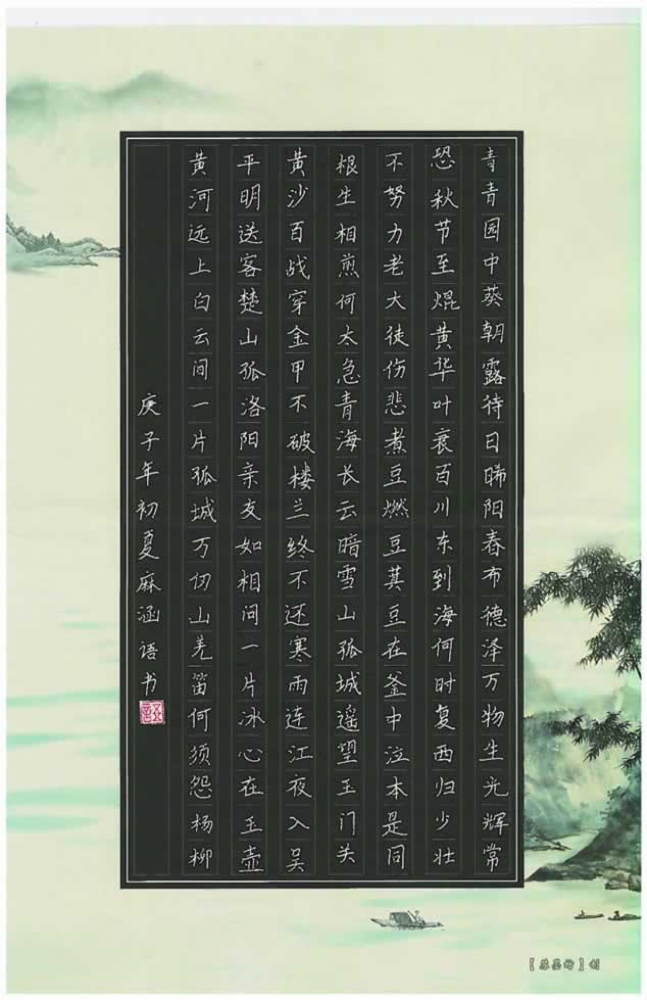 青青园中葵朝露待日晞阳春布德泽万物生光辉常
恐秋节至焜黄华叶衰百川东到海何时复西归少壮
不努力老大徒伤悲煮豆燃豆萁豆在釜中泣本是同
根生相煎何太急青海长云暗雪山孤城遥望玉门关
黄沙百战穿金甲不破楼兰终不还寒雨连江夜入吴
平明送客楚山孤洛阳亲友如相问一片冰心在玉壶
黄河远上白云间一片孤城万仞山羌笛何须怨杨柳
庚子年初夏麻涵语书